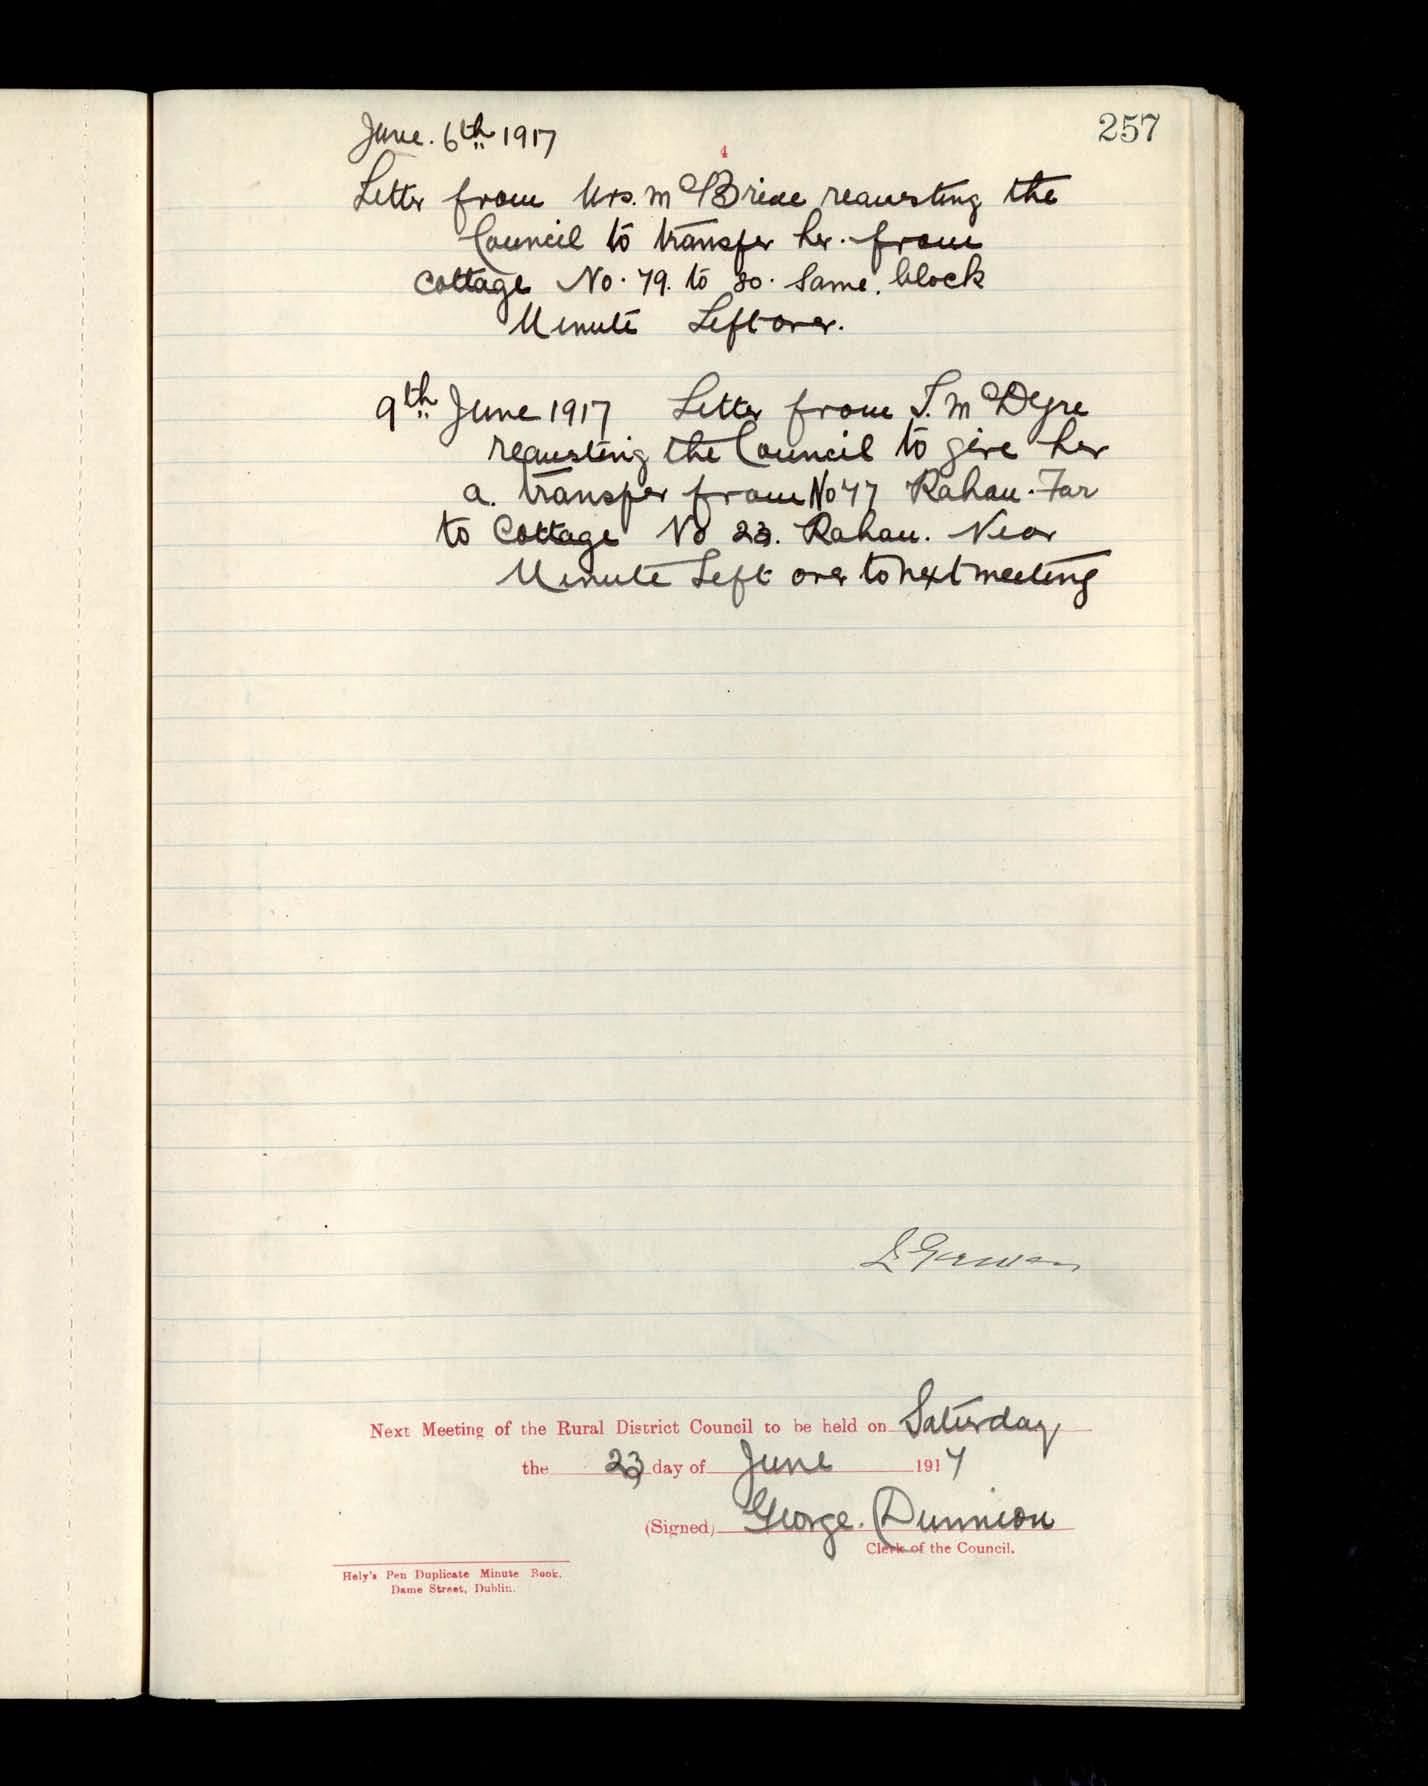 257
June. 6th 1917
4
Letter from Mrs. McBride requesting the
Council to transfer her. from
Cottage No. 79. to 80. Same. block
Minute Left over.
9th June 1917 Letter from T. McDyre
requesting the Council to give her
a. transfer from No 47 Rahan. Far
to Cottage No 23. Rahan. Near
Minute Left over to next meeting
Next Meeting of the Rural District Council to be held on Saturday
the 23 day of June 1917
(Signed) George. Dunnion
Clerk of the Council.
Hely's Pen Duplicate Minute Book.
Dame Street, Dublin.